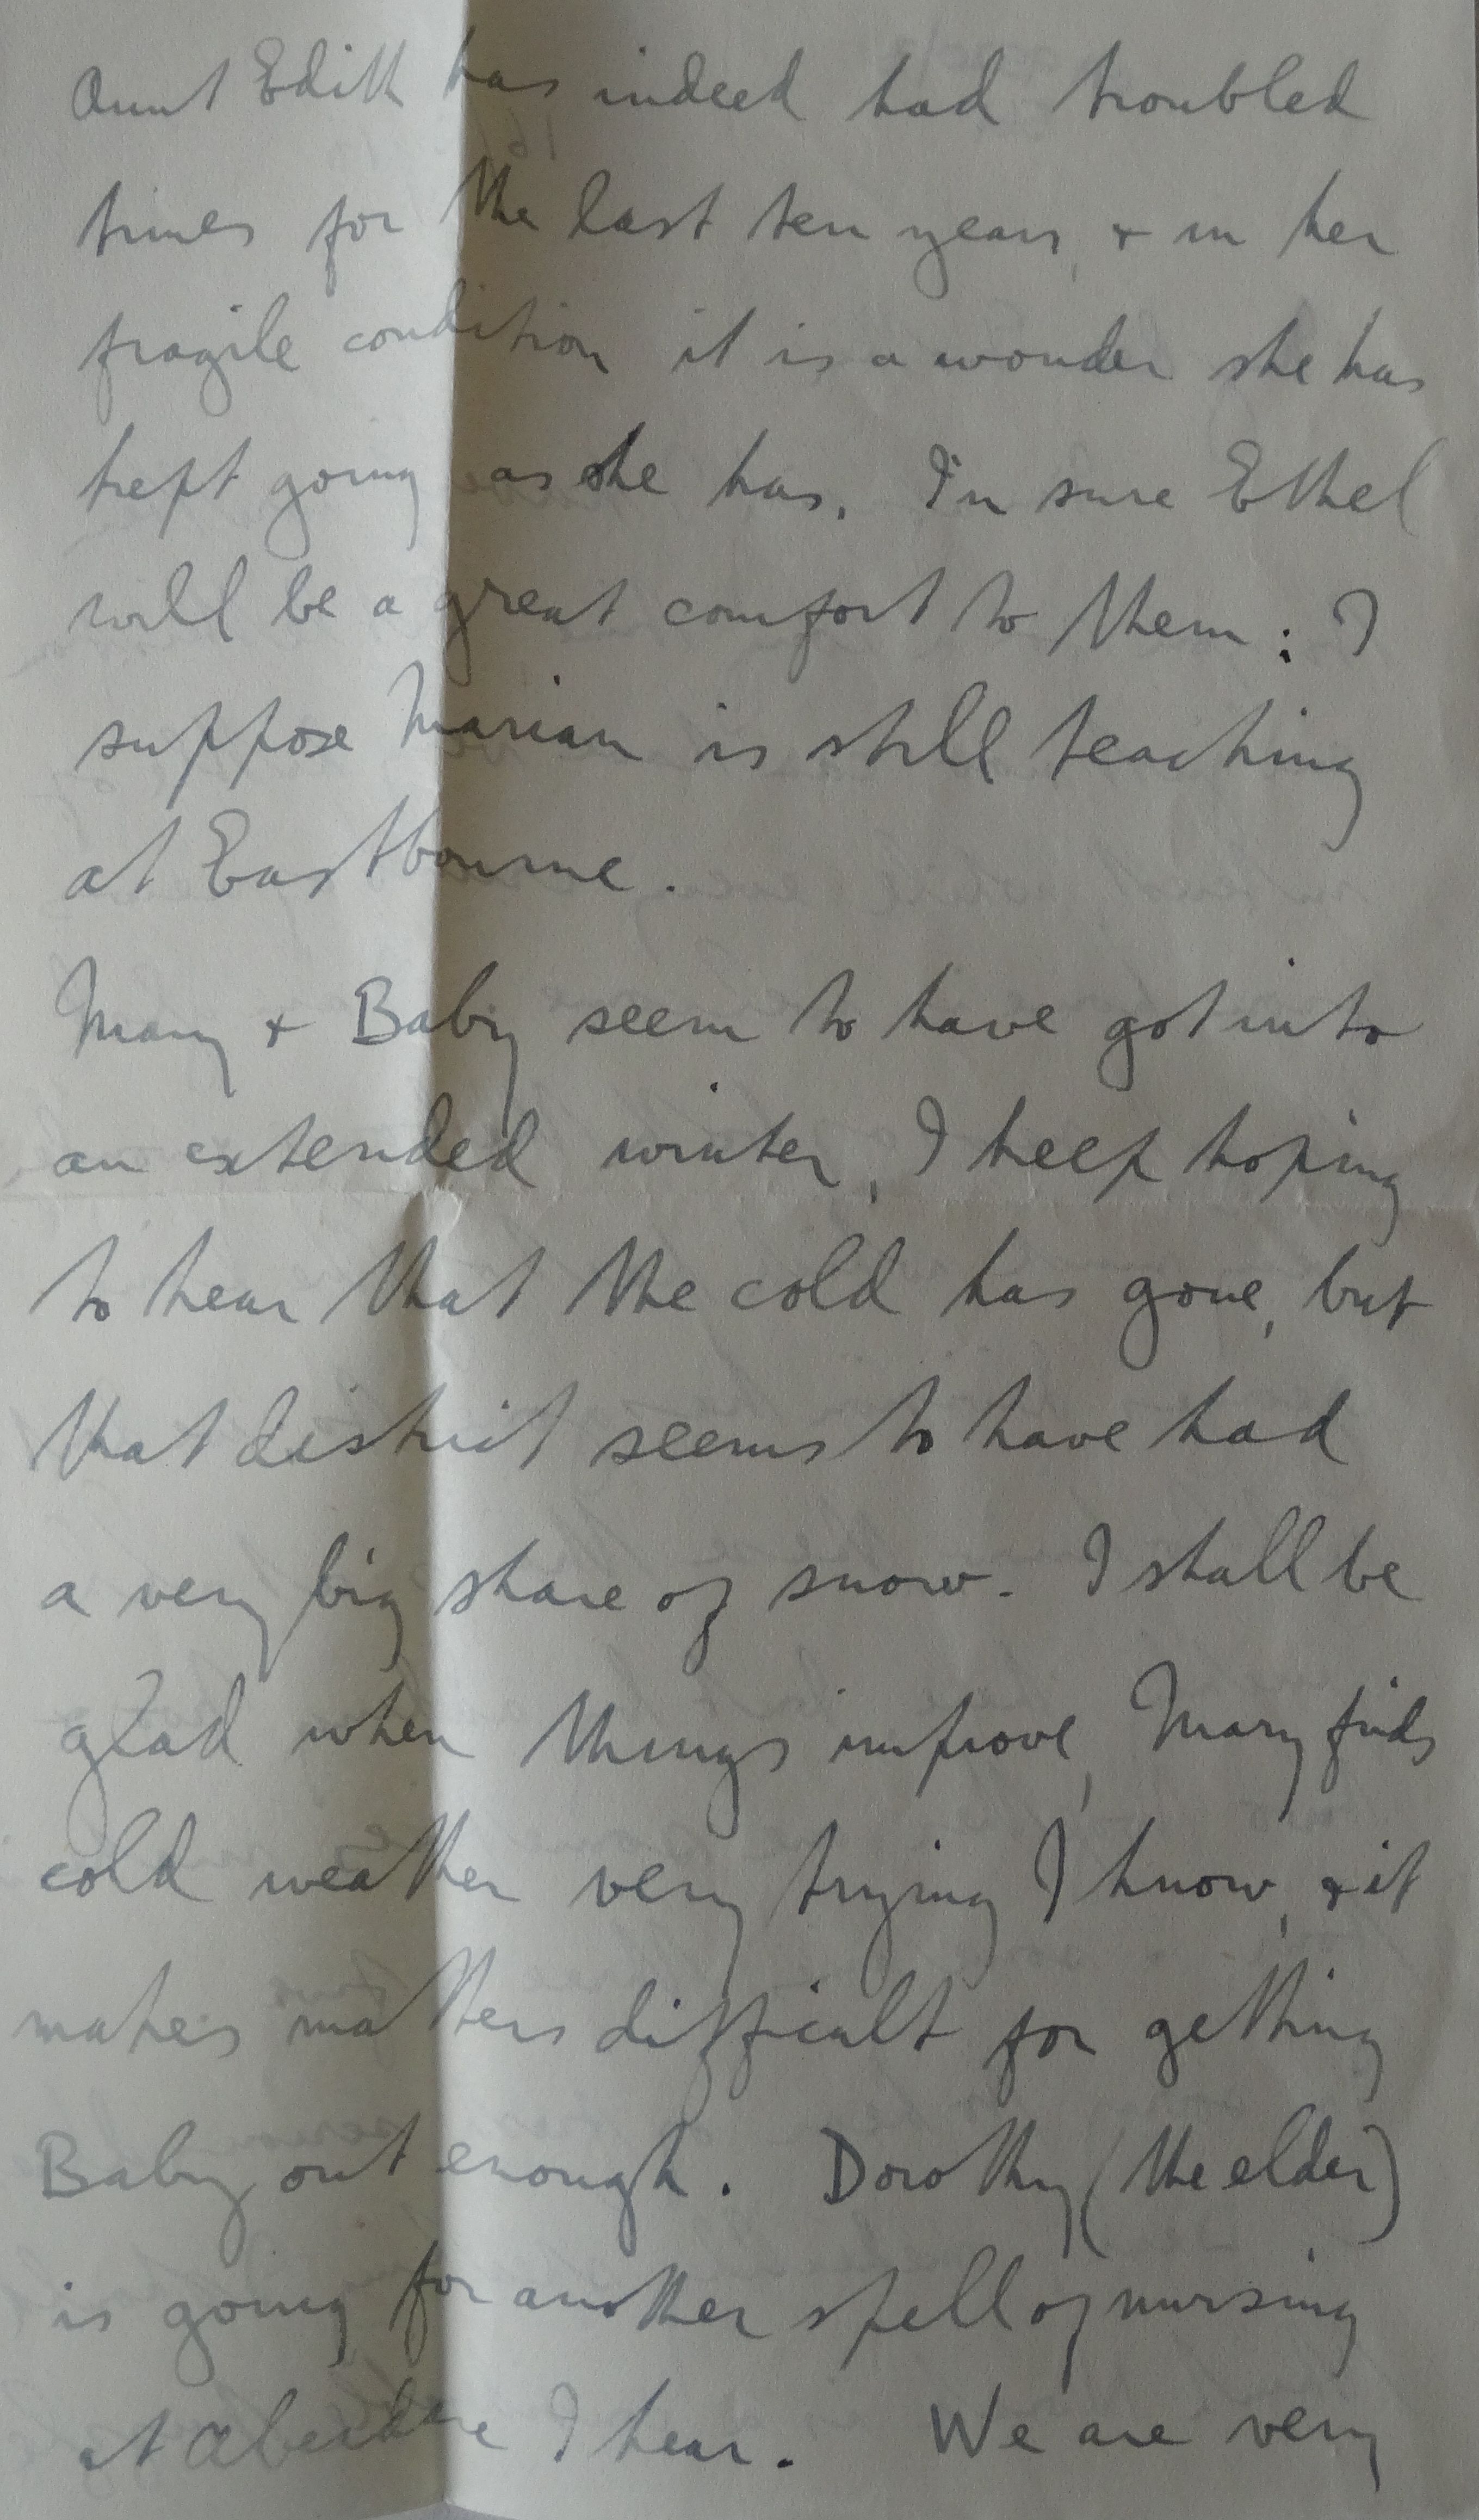 Aunt Edith has indeed had troubled
times for the last ten years, & in her
fragile condition it is a wonder she has
kept going as she has. I'm sure Ethel
will be a great comfort to them: I
suppose Marian is still teaching
at Eastbourne.
Mary & Baby seem to have got into
an extended winter, I keep hoping
to hear that the cold has gone, but
that district seems to have had
a very big share of snow. I shall be
glad when things improve, Mary finds
cold weather very trying I know, & it
makes matters difficult for getting
Baby out enough. Dorothy (the elder)
is going for another spell of nursing
at Aberdare I hear. We are very